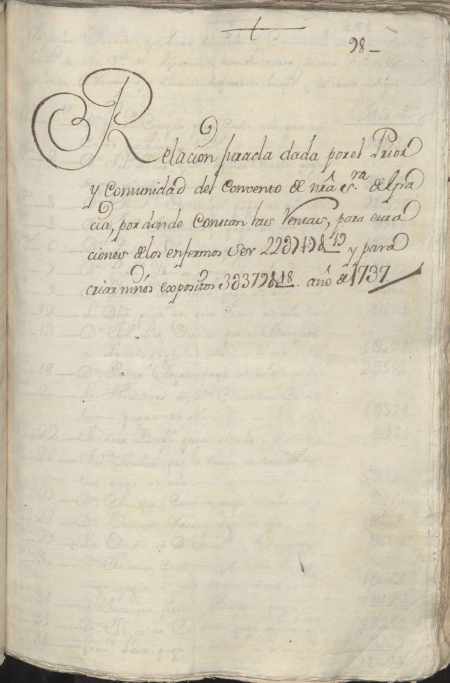 98_
Relacion Jurada dada por el Prior
y Comunidad del Convento de nrâ s.ra de Gra
cia, por donde Constan las Rentas, para cura
ciones de los enfermos Ser
y para
criar niños expositos año de 1737